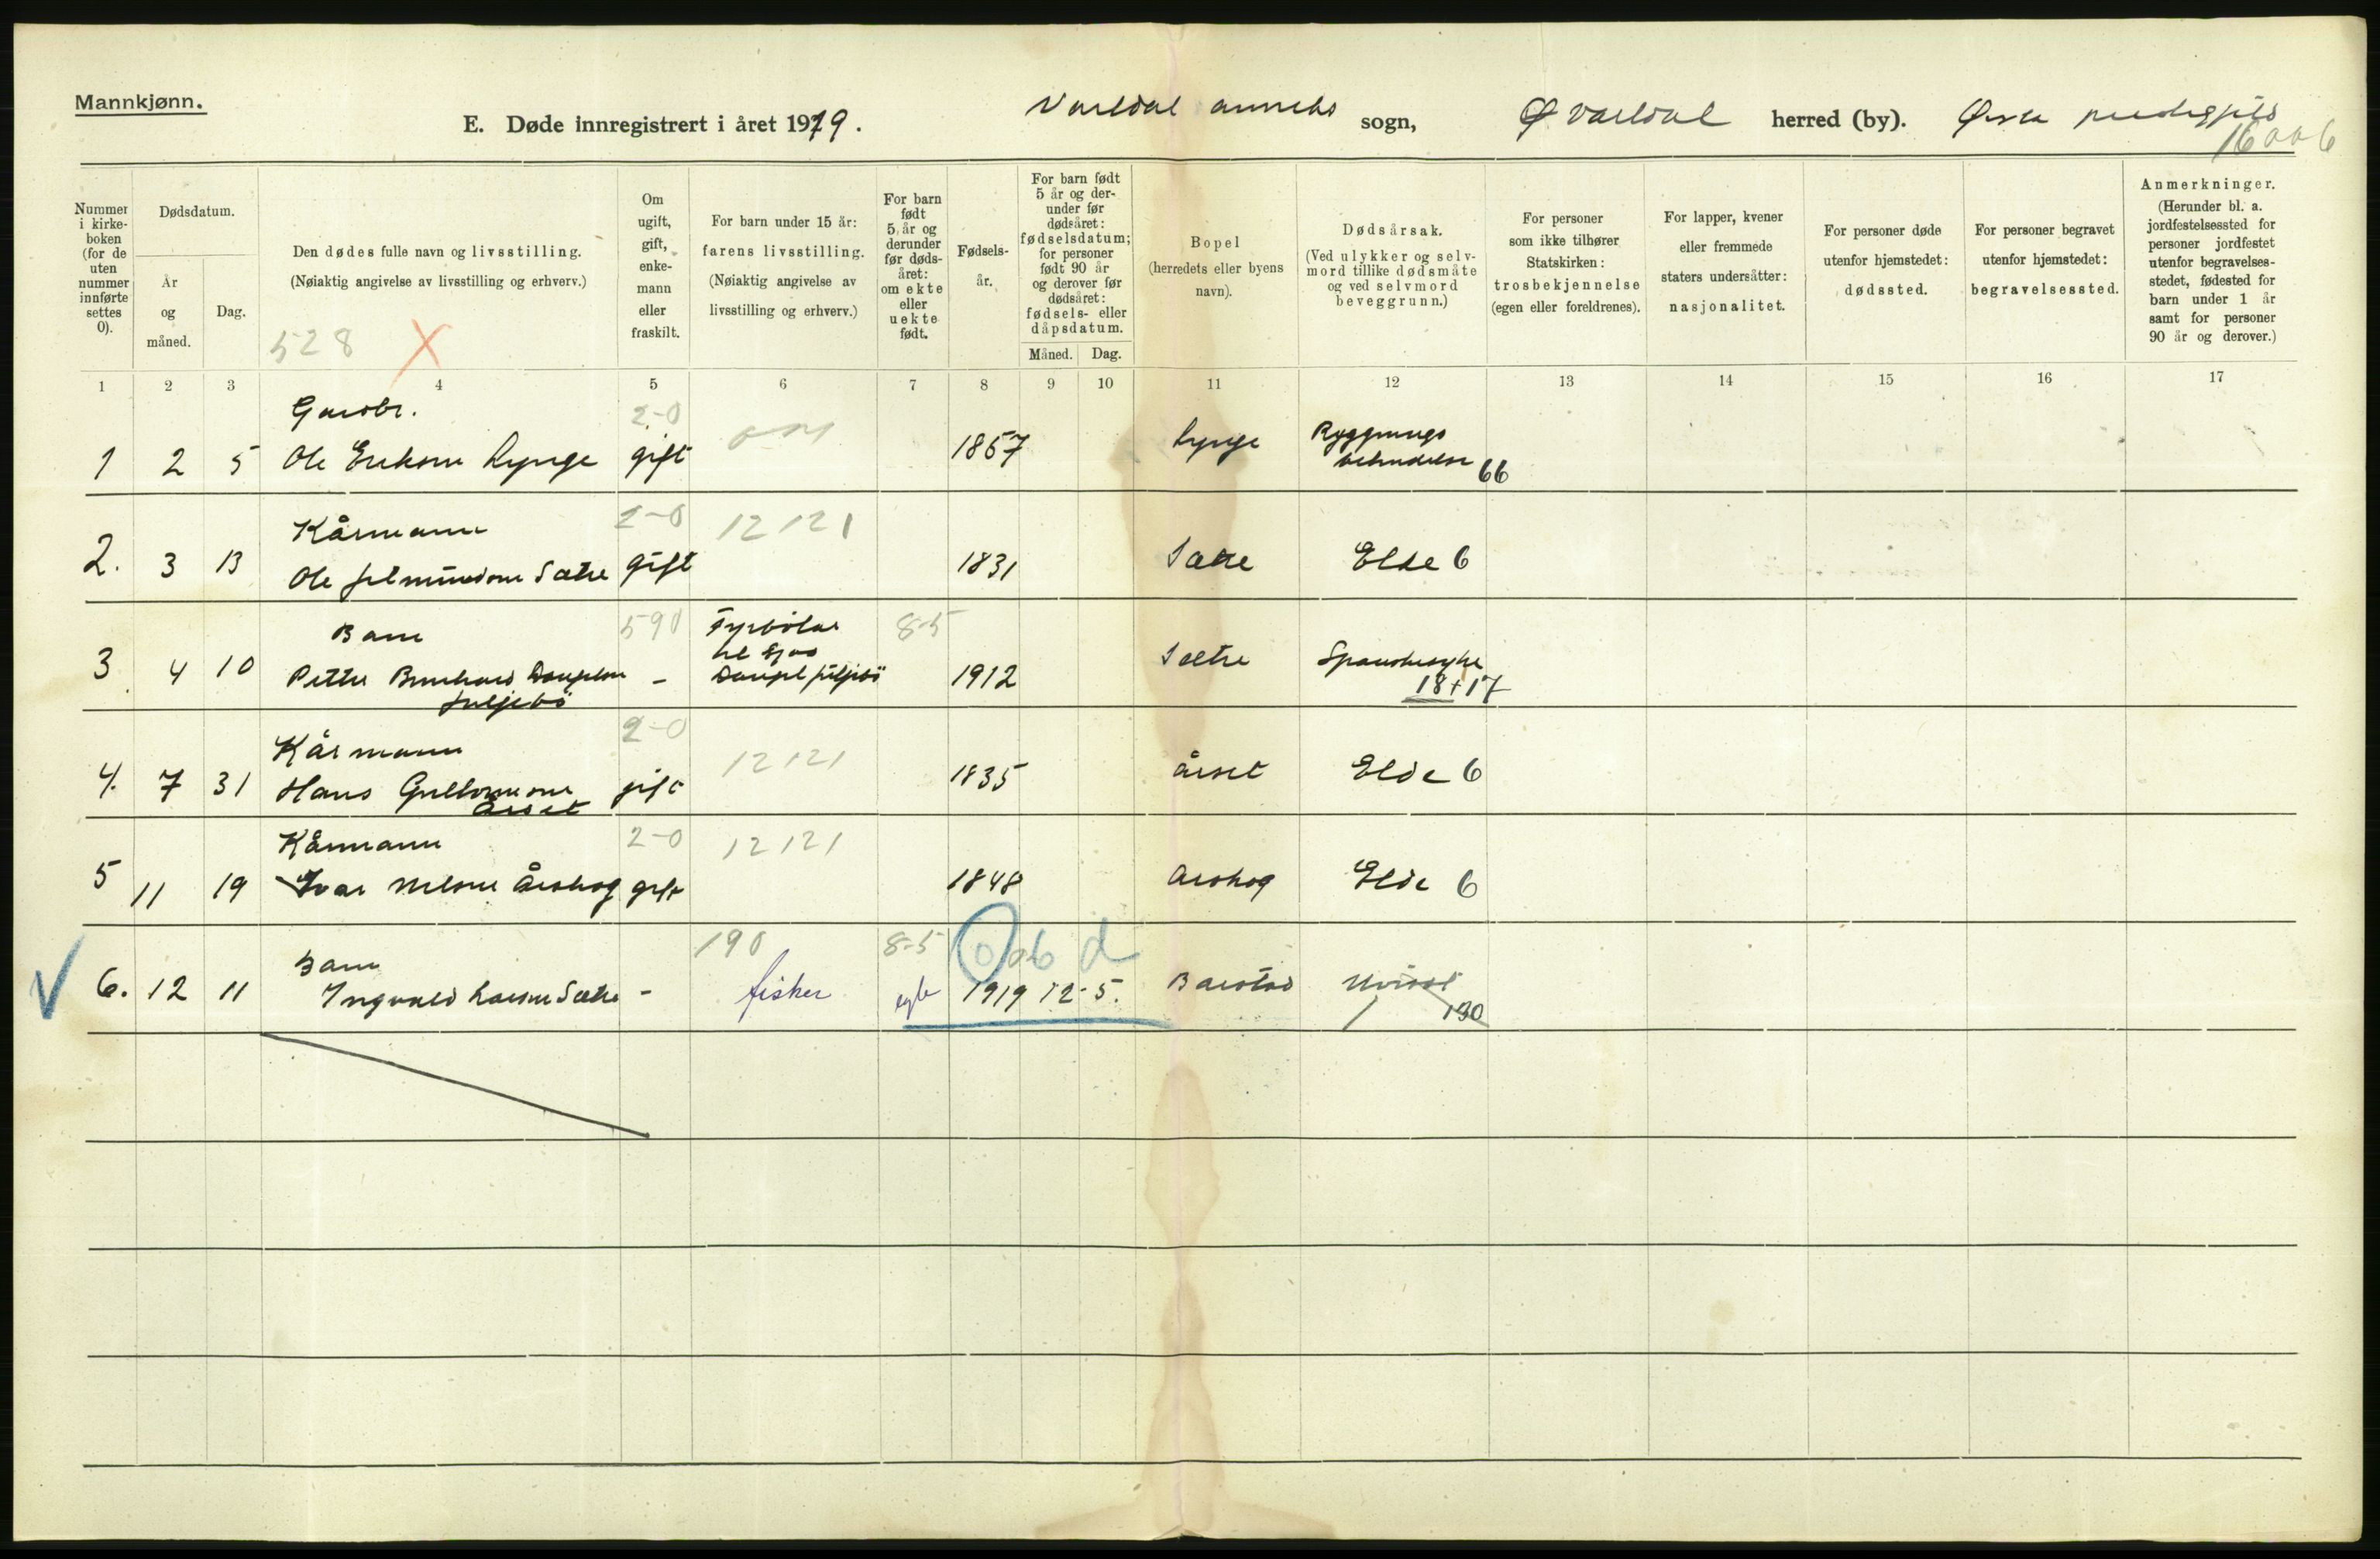 Mannkjønn.
E. Døde innregistrert i året 1919. Vartdal sogn, Vartdal herred (by). Ørsta
16006
Nummer i kirke- boken (for de uten nummer innførte settes 0).
Dødsdatum.
År og måned.
Dag.
Den dødes fulle navn og livsstilling.
(Nøiaktig angivelse av livsstilling og erhverv.)
528 X
Om ugift, gift, enke- mann eller fraskilt.
For barn under 15 år:
farens livsstilling.
(Nøiaktig angivelse av
livsstilling og erhverv.)
For barn født 5 år og derunder før døds- året: om ekte eller uekte født.
Fødsels- år.
For barn født
5 år og der-
under før
dødsåret:
fødselsdatum;
for personer
født 90 år
og derover før
dødsåret:
fødsels- eller
dåpsdatum.
Måned. Dag.
Bopel
(herredets eller byens
navn).
Dødsårsak.
(Ved ulykker og selv-
mord tillike dødsmåte
og ved selvmord
beveggrunn.)
For personer
som ikke tilhører
Statskirken:
trosbekjennelse
(egen eller foreldrenes).
For lapper, kvener
eller fremmede
staters undersåtter:
nasjonalitet.
For personer døde
utenfor hjemstedet:
dødssted.
For personer begravet
utenfor hjemstedet:
begravelsessted.
Anmerkninger.
(Herunder bl. a.
jordfestelsessted for
personer jordfestet
utenfor begravelses-
stedet, fødested for
barn under 1 år
samt for personer
90 år og derover.)
1 2 3 4 5 6 7 8 9 10 11 12 13 14 15 16 17
Gardbr. 2-0
1 2 5 Ole Eriksen Lynge gift 1857 Lynge Ryggmargs
66
Kårmann 2-0 12121
2. 3 13 Ole Sætre gift 1831 Sætre Elde 6
Barn 590 8-5
3 4 10 Petter Bernhard - 1912 Sætre Spanskesyke
18+17
Kårmann 2-0 12121
4. 7 31 Hans gift 1835 Årset Elde 6
Årset
Kårmann 2-0 12121
5 11 19 Ivar Nilsen Årskog gift 1848 Årskog Elde 6
Barn 190 8-5 0 06 d
6. 12 11 Ingvald Larsen Sætre - fisker egte 1919 12-5. Barstad Uvisst
190